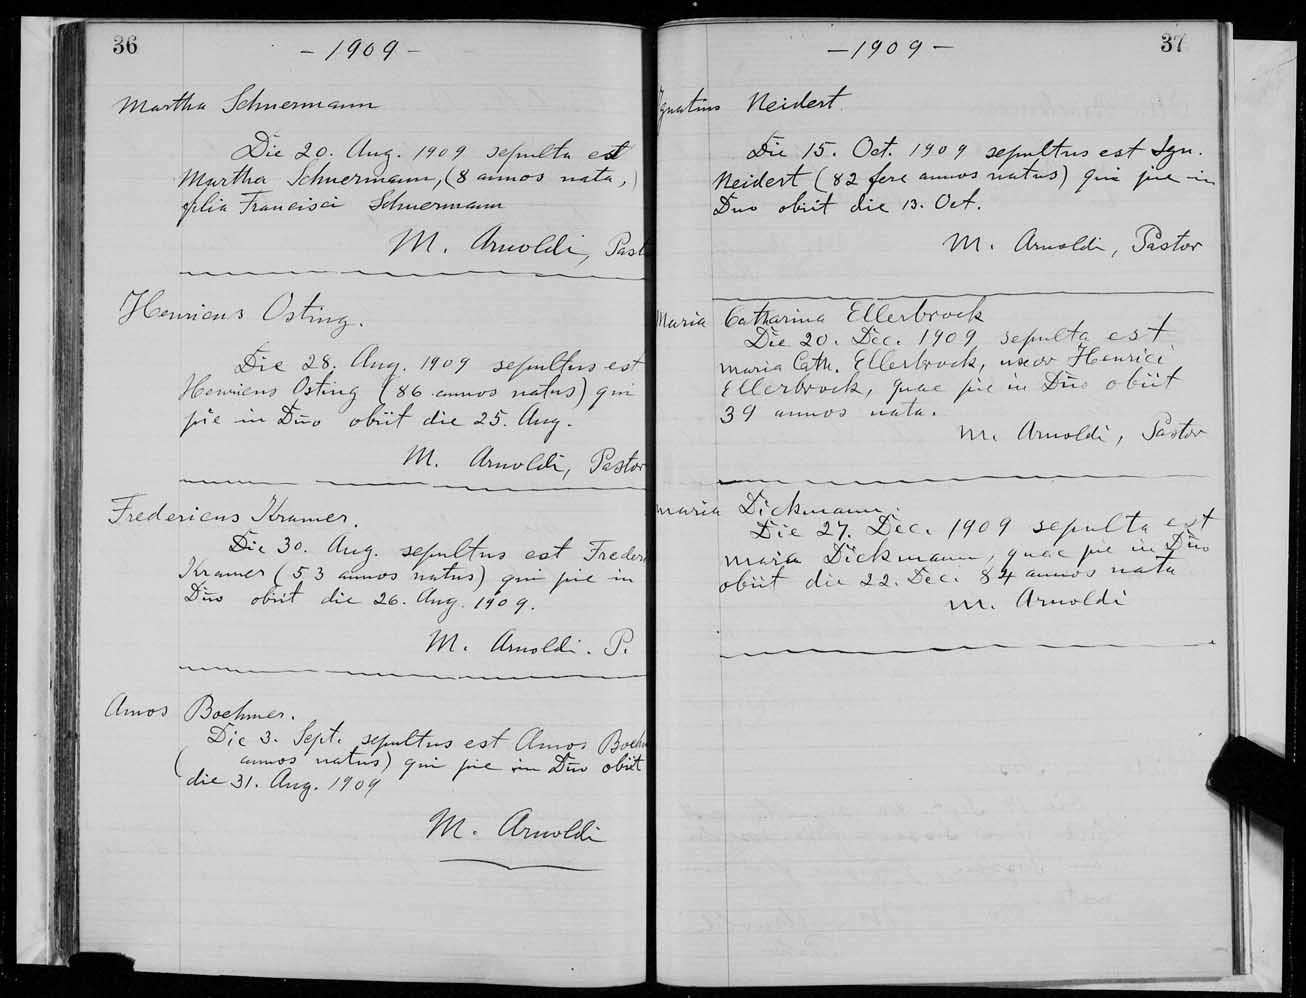 36
- 1909 -
Martha Schuermann
Die 20. Aug. 1909 sepulta est
Martha Schuermann, (8 annos nata,)
filia Francisci Schuermann
M. Arnoldi, Past
Henricus Osting.
Die 28. Aug. 1909 sepultus est
Henricus Osting (86 annos natus) qui
pie in Dño obiit die 25. Aug.
M. Arnoldi, Pastor
Fredericus Kramer.
Die 30. Aug. sepultus est Frederi
Kramer (53 annos natus) qui pie in
Dño obiit die 26. Aug. 1909.
M. Arnoldi. P.
Amos Boehmer.
Die 3. Sept. sepultus est Amos Boehm
( annos natus) qui pie in Dño obiit
die 31. Aug. 1909
M. Arnoldi
37
- 1909 -
Ignatius Neidert.
Die 15. Oct. 1909 sepultus est Ign.
Neidert (82 fere annos natus) qui pie in
Dño obiit die 13. Oct.
M. Arnoldi, Pastor
Maria Catharina Ellerbrock
Die 20. Dec. 1909 sepulta est
Maria Cath. Ellerbrock, uxor Henrici
Ellerbrock, quae pie in Dño obiit
39 annos nata.
M. Arnoldi, Pastor
Maria Dickmann.
Die 27. Dec. 1909 sepulta est
Maria Dickmann, quae pie in Dño
obiit die 22. Dec. 84 annos nata
M. Arnoldi